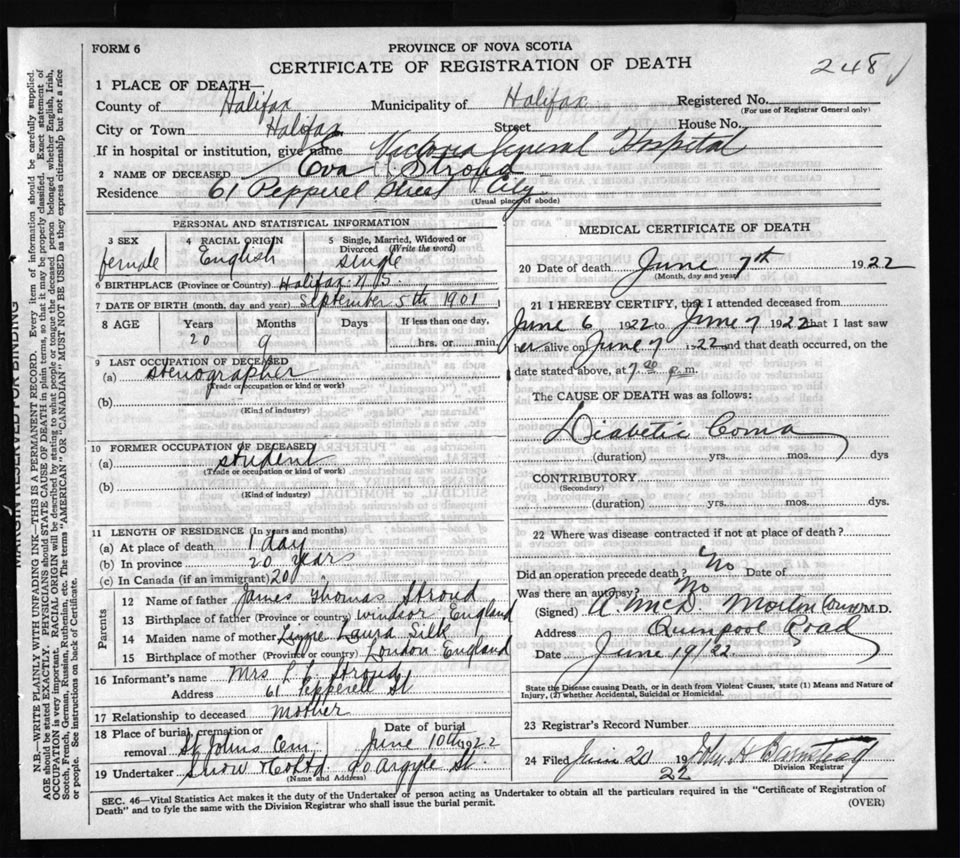 FORM 6
PROVINCE OF NOVA SCOTIA
CERTIFICATE OF REGISTRATION OF DEATH
248
1 PLACE OF DEATH—
County of Halifax Municipality of Halifax Registered No.
(For use of Registrar General only)
City or Town Halifax Street House No.
If in hospital or institution, give name Victoria General Hospital
2 NAME OF DECEASED Eva Stroud
Residence 61 Pepperel Street City
(Usual place of abode)
PERSONAL AND STATISTICAL INFORMATION
3 SEX female
4 RACIAL ORIGIN English
5 Single, Married, Widowed or Divorced (Write the word) single
6 BIRTHPLACE (Province or Country) Halifax N.S.
7 DATE OF BIRTH (month, day and year) September 5th 1901
8 AGE Years 20 Months 9 Days If less than one day, hrs. or min.
9 LAST OCCUPATION OF DECEASED
(a) stenographer
(Trade or occupation or kind or work)
(b)
(Kind of industry)
10 FORMER OCCUPATION OF DECEASED
(a) student
(Trade or occupation or kind of work)
(b)
(Kind of industry)
11 LENGTH OF RESIDENCE (In years and months)
(a) At place of death 1 day
(b) In province 20 years
(c) In Canada (if an immigrant) 20
Parents
12 Name of father James Thomas Stroud
13 Birthplace of father (Province or country) Windsor England
14 Maiden name of mother Laura Silk
15 Birthplace of mother (Province or country) London England
16 Informant's name Mrs L. L. Stroud
Address 61 Pepperell St
17 Relationship to deceased mother
18 Place of burial, cremation or removal St Johns Cem
Date of burial June 10th 1922
19 Undertaker Snow & Co Ltd 90 Argyle St.
(Name and Address)
MEDICAL CERTIFICATE OF DEATH
20 Date of death June 7th 1922
(Month, day and year)
21 I HEREBY CERTIFY, that I attended deceased from
June 6 1922 to June 7 1922 that I last saw
her alive on June 7 1922 and that death occurred, on the
date stated above, at 7.20 p.m.
The CAUSE OF DEATH was as follows:
Diabetic Coma
(duration) yrs. mos. dys
CONTRIBUTORY
(Secondary)
(duration) yrs. mos. dys.
22 Where was disease contracted if not at place of death?
Did an operation precede death? No Date of
Was there an autopsy? No
(Signed) A. McD. Morton M.D.
Address Quinpool Road
Date June 19/22
State the Disease causing Death, or in death from Violent Causes, state (1) Means and Nature of
Injury, (2) whether Accidental, Suicidal or Homicidal.
23 Registrar's Record Number
24 Filed June 20 1922 John H Barnstead
Division Registrar
SEC. 46—Vital Statistics Act makes it the duty of the Undertaker or person acting as Undertaker to obtain all the particulars required in the "Certificate of Registration of
Death" and to fyle the same with the Division Registrar who shall issue the burial permit.
(OVER)
MARGIN RESERVED FOR BINDING
N.B.—WRITE PLAINLY WITH UNFADING INK—THIS IS A PERMANENT RECORD. Every item of information should be carefully supplied.
AGE should be stated EXACTLY. PHYSICIANS should STATE CAUSE OF DEATH in plain terms, so that it may be properly classified. Exact statement of
OCCUPATION is very important. RACIAL ORIGIN will be described by stating to what people or tongue the deceased person belonged whether English, Irish,
Scotch, French, German, Russian, Ruthenian, etc. The terms "AMERICAN" OR "CANADIAN" MUST NOT BE USED as they express citizenship but not a race
or people. See instructions on back of Certificate.